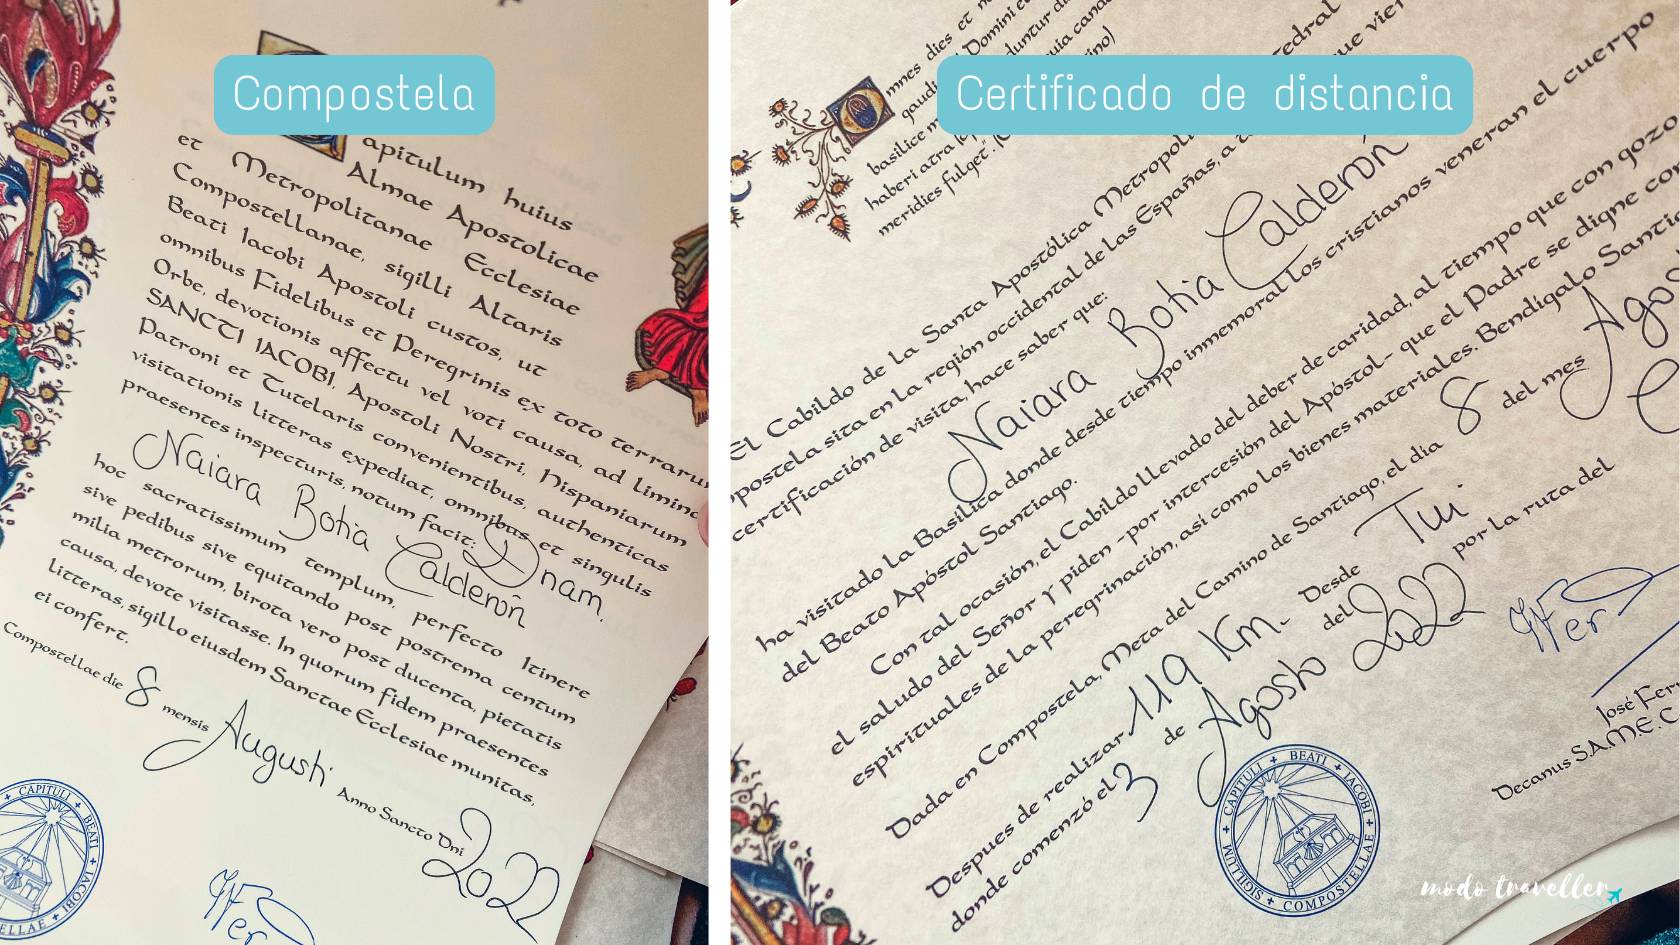 Compostela
apitulum huius
Almae Apostolicae
et Metropolitanae Ecclesiae
Compostellanae, sigilli Altaris
Beati Iacobi Apostoli custos, ut
omnibus Fidelibus et Peregrinis ex toto terrarum
Orbe, devotionis affectu vel voti causa, ad limina
SANCTI IACOBI, Apostoli Nostri, Hispaniarum
Patroni et Tutelaris convenientibus, authenticas
visitationis litteras expediat, omnibus et singulis
praesentes inspecturis, notum facit: Dnam.
Naiara Botia Calderón
hoc sacratissimum templum, perfecto Itinere
sive pedibus sive equitando post postrema centum
milia metrorum, birota vero post ducenta, pietatis
causa, devote visitasse. In quorum fidem praesentes
litteras, sigillo eiusdem Sanctae Ecclesiae munitas,
ei confert.
Compostellae die 8 mensis Augusti Anno Sancto Dni 2022
CAPITULI BEATI IACOBI
Certificado de distancia
mnes dies et
gaudi Domini
basilice
haberi atra
meridies fulget".
El Cabildo de la Santa Apostólica Metropoli edral
postela sita en la región occidental de las Españas, a que
certificación de visita, hace saber que:
Naiara Botia Calderón
ha visitado la Basílica donde desde tiempo inmemorial los cristianos veneran el cuerpo
del Beato Apóstol Santiago.
Con tal ocasión, el Cabildo llevado del deber de caridad, al tiempo que con gozo
el saludo del Señor y piden -por intercesión del Apóstol- que el Padre se digne
espirituales de la peregrinación, así como los bienes materiales. Bendígalo
Dada en Compostela, Meta del Camino de Santiago, el día 8 del mes Agos
Despues de realizar 119 Km. Desde Tui
donde comenzó el 3 de Agosto del 2022 por la ruta del
José
Decanus S.A.M.E.C.
SIGILLUM CAPITULI BEATI IACOBI COMPOSTELLAE
modo traveller